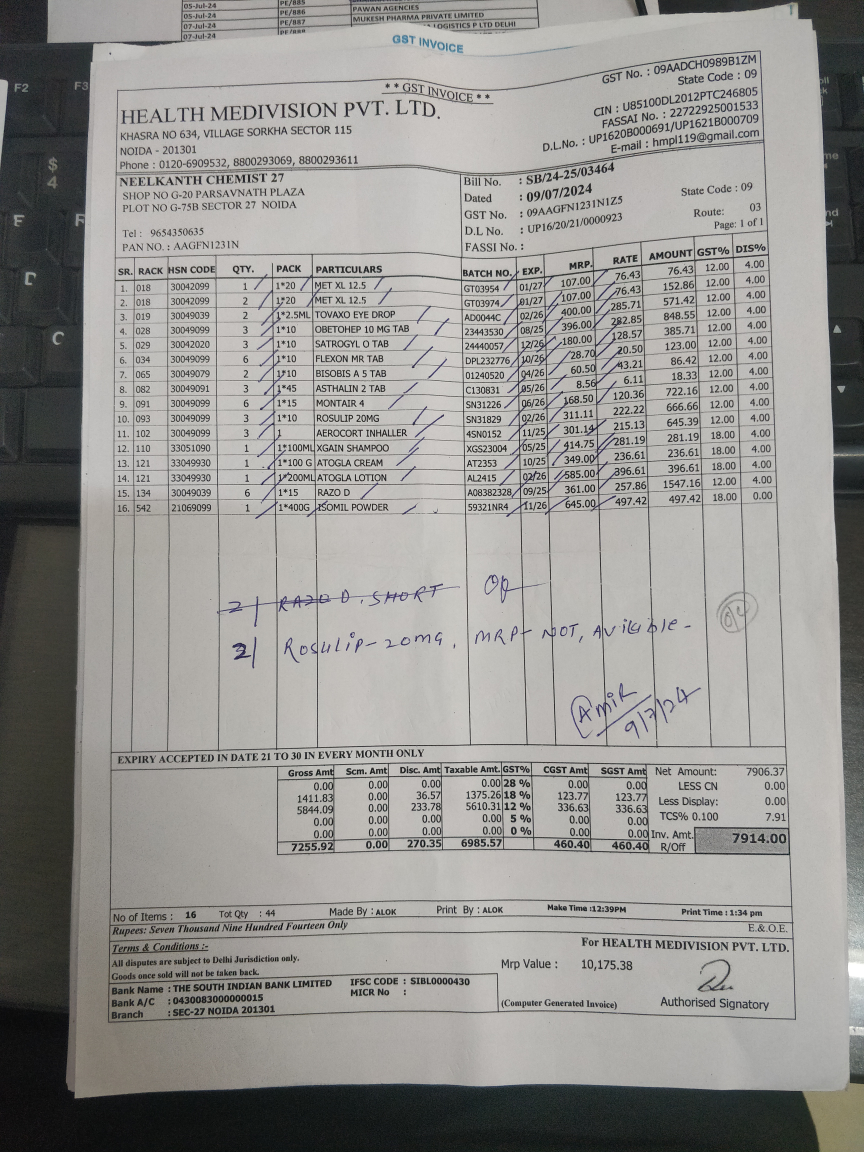 05-Jul-24 PE/885
05-Jul-24 PE/886 PAWAN AGENCIES
07-Jul-24 PE/887 MUKESH PHARMA PRIVATE LIMITED
07-Jul-24 LOGISTICS P LTD DELHI
GST INVOICE
* * GST INVOICE * *
HEALTH MEDIVISION PVT. LTD.
KHASRA NO 634, VILLAGE SORKHA SECTOR 115
NOIDA - 201301
Phone : 0120-6909532, 8800293069, 8800293611
GST No. : 09AADCH0989B1ZM
State Code : 09
CIN : U85100DL2012PTC246805
FASSAI No. : 22722925001533
D.L.No. : UP1620B000691/UP1621B000709
E-mail : hmpl119@gmail.com
NEELKANTH CHEMIST 27
SHOP NO G-20 PARSAVNATH PLAZA
PLOT NO G-75B SECTOR 27 NOIDA
Tel : 9654350635
PAN NO. : AAGFN1231N
Bill No. : SB/24-25/03464
Dated : 09/07/2024 State Code : 09
GST No. : 09AAGFN1231N1Z5
D.L No. : UP16/20/21/0000923 Route: 03
FASSI No. : Page: 1 of 1
SR. RACK HSN CODE QTY. PACK PARTICULARS BATCH NO. EXP. MRP. RATE AMOUNT GST% DIS%
1. 018 30042099 1 1*20 MET XL 12.5 GT03954 01/27 107.00 76.43 76.43 12.00 4.00
2. 018 30042099 2 1*20 MET XL 12.5 GT03974 01/27 107.00 76.43 152.86 12.00 4.00
3. 019 30049039 2 1*2.5ML TOVAXO EYE DROP AD0044C 02/26 400.00 285.71 571.42 12.00 4.00
4. 028 30049099 3 1*10 OBETOHEP 10 MG TAB 23443530 08/25 396.00 282.85 848.55 12.00 4.00
5. 029 30042020 3 1*10 SATROGYL O TAB 24440057 12/26 180.00 128.57 385.71 12.00 4.00
6. 034 30049099 6 1*10 FLEXON MR TAB DPL232776 10/26 28.70 20.50 123.00 12.00 4.00
7. 065 30049079 2 1*10 BISOBIS A 5 TAB 01240520 04/26 60.50 43.21 86.42 12.00 4.00
8. 082 30049091 3 1*45 ASTHALIN 2 TAB C130831 05/26 8.56 6.11 18.33 12.00 4.00
9. 091 30049099 6 1*15 MONTAIR 4 SN31226 06/26 168.50 120.36 722.16 12.00 4.00
10. 093 30049099 3 1*10 ROSULIP 20MG SN31829 02/26 311.11 222.22 666.66 12.00 4.00
11. 102 30049099 3 1 AEROCORT INHALLER 4SN0152 11/25 301.14 215.13 645.39 12.00 4.00
12. 110 33051090 1 1*100ML XGAIN SHAMPOO XGS23004 05/25 414.75 281.19 281.19 18.00 4.00
13. 121 33049930 1 1*100 G ATOGLA CREAM AT2353 10/25 349.00 236.61 236.61 18.00 4.00
14. 121 33049930 1 1*200ML ATOGLA LOTION AL2415 02/26 585.00 396.61 396.61 18.00 4.00
15. 134 30049039 6 1*15 RAZO D A08382328 09/25 361.00 257.86 1547.16 12.00 4.00
16. 542 21069099 1 1*400G ISOMIL POWDER 59321NR4 11/26 645.00 497.42 497.42 18.00 0.00
2| RAZO D. SHORT
2| Rosulip-20mg, MRP- NOT, AVilable -
Amir
9/7/24
EXPIRY ACCEPTED IN DATE 21 TO 30 IN EVERY MONTH ONLY
Gross Amt Scm. Amt Disc. Amt Taxable Amt. GST% CGST Amt SGST Amt
0.00 0.00 0.00 0.00 28 % 0.00 0.00
1411.83 0.00 36.57 1375.26 18 % 123.77 123.77
5844.09 0.00 233.78 5610.31 12 % 336.63 336.63
0.00 0.00 0.00 0.00 5 % 0.00 0.00
0.00 0.00 0.00 0.00 0 % 0.00 0.00
7255.92 0.00 270.35 6985.57 460.40 460.40
Net Amount: 7906.37
LESS CN 0.00
Less Display: 0.00
TCS% 0.100 7.91
Inv. Amt. 7914.00
R/Off
No of Items : 16 Tot Qty : 44 Made By : ALOK Print By : ALOK Make Time :12:39PM Print Time : 1:34 pm
Rupees: Seven Thousand Nine Hundred Fourteen Only E.& O.E.
Terms & Conditions :-
All disputes are subject to Delhi Jurisdiction only.
Goods once sold will not be taken back.
Bank Name : THE SOUTH INDIAN BANK LIMITED IFSC CODE : SIBL0000430
Bank A/C : 0430083000000015 MICR No :
Branch : SEC-27 NOIDA 201301
For HEALTH MEDIVISION PVT. LTD.
Mrp Value : 10,175.38
(Computer Generated Invoice) Authorised Signatory